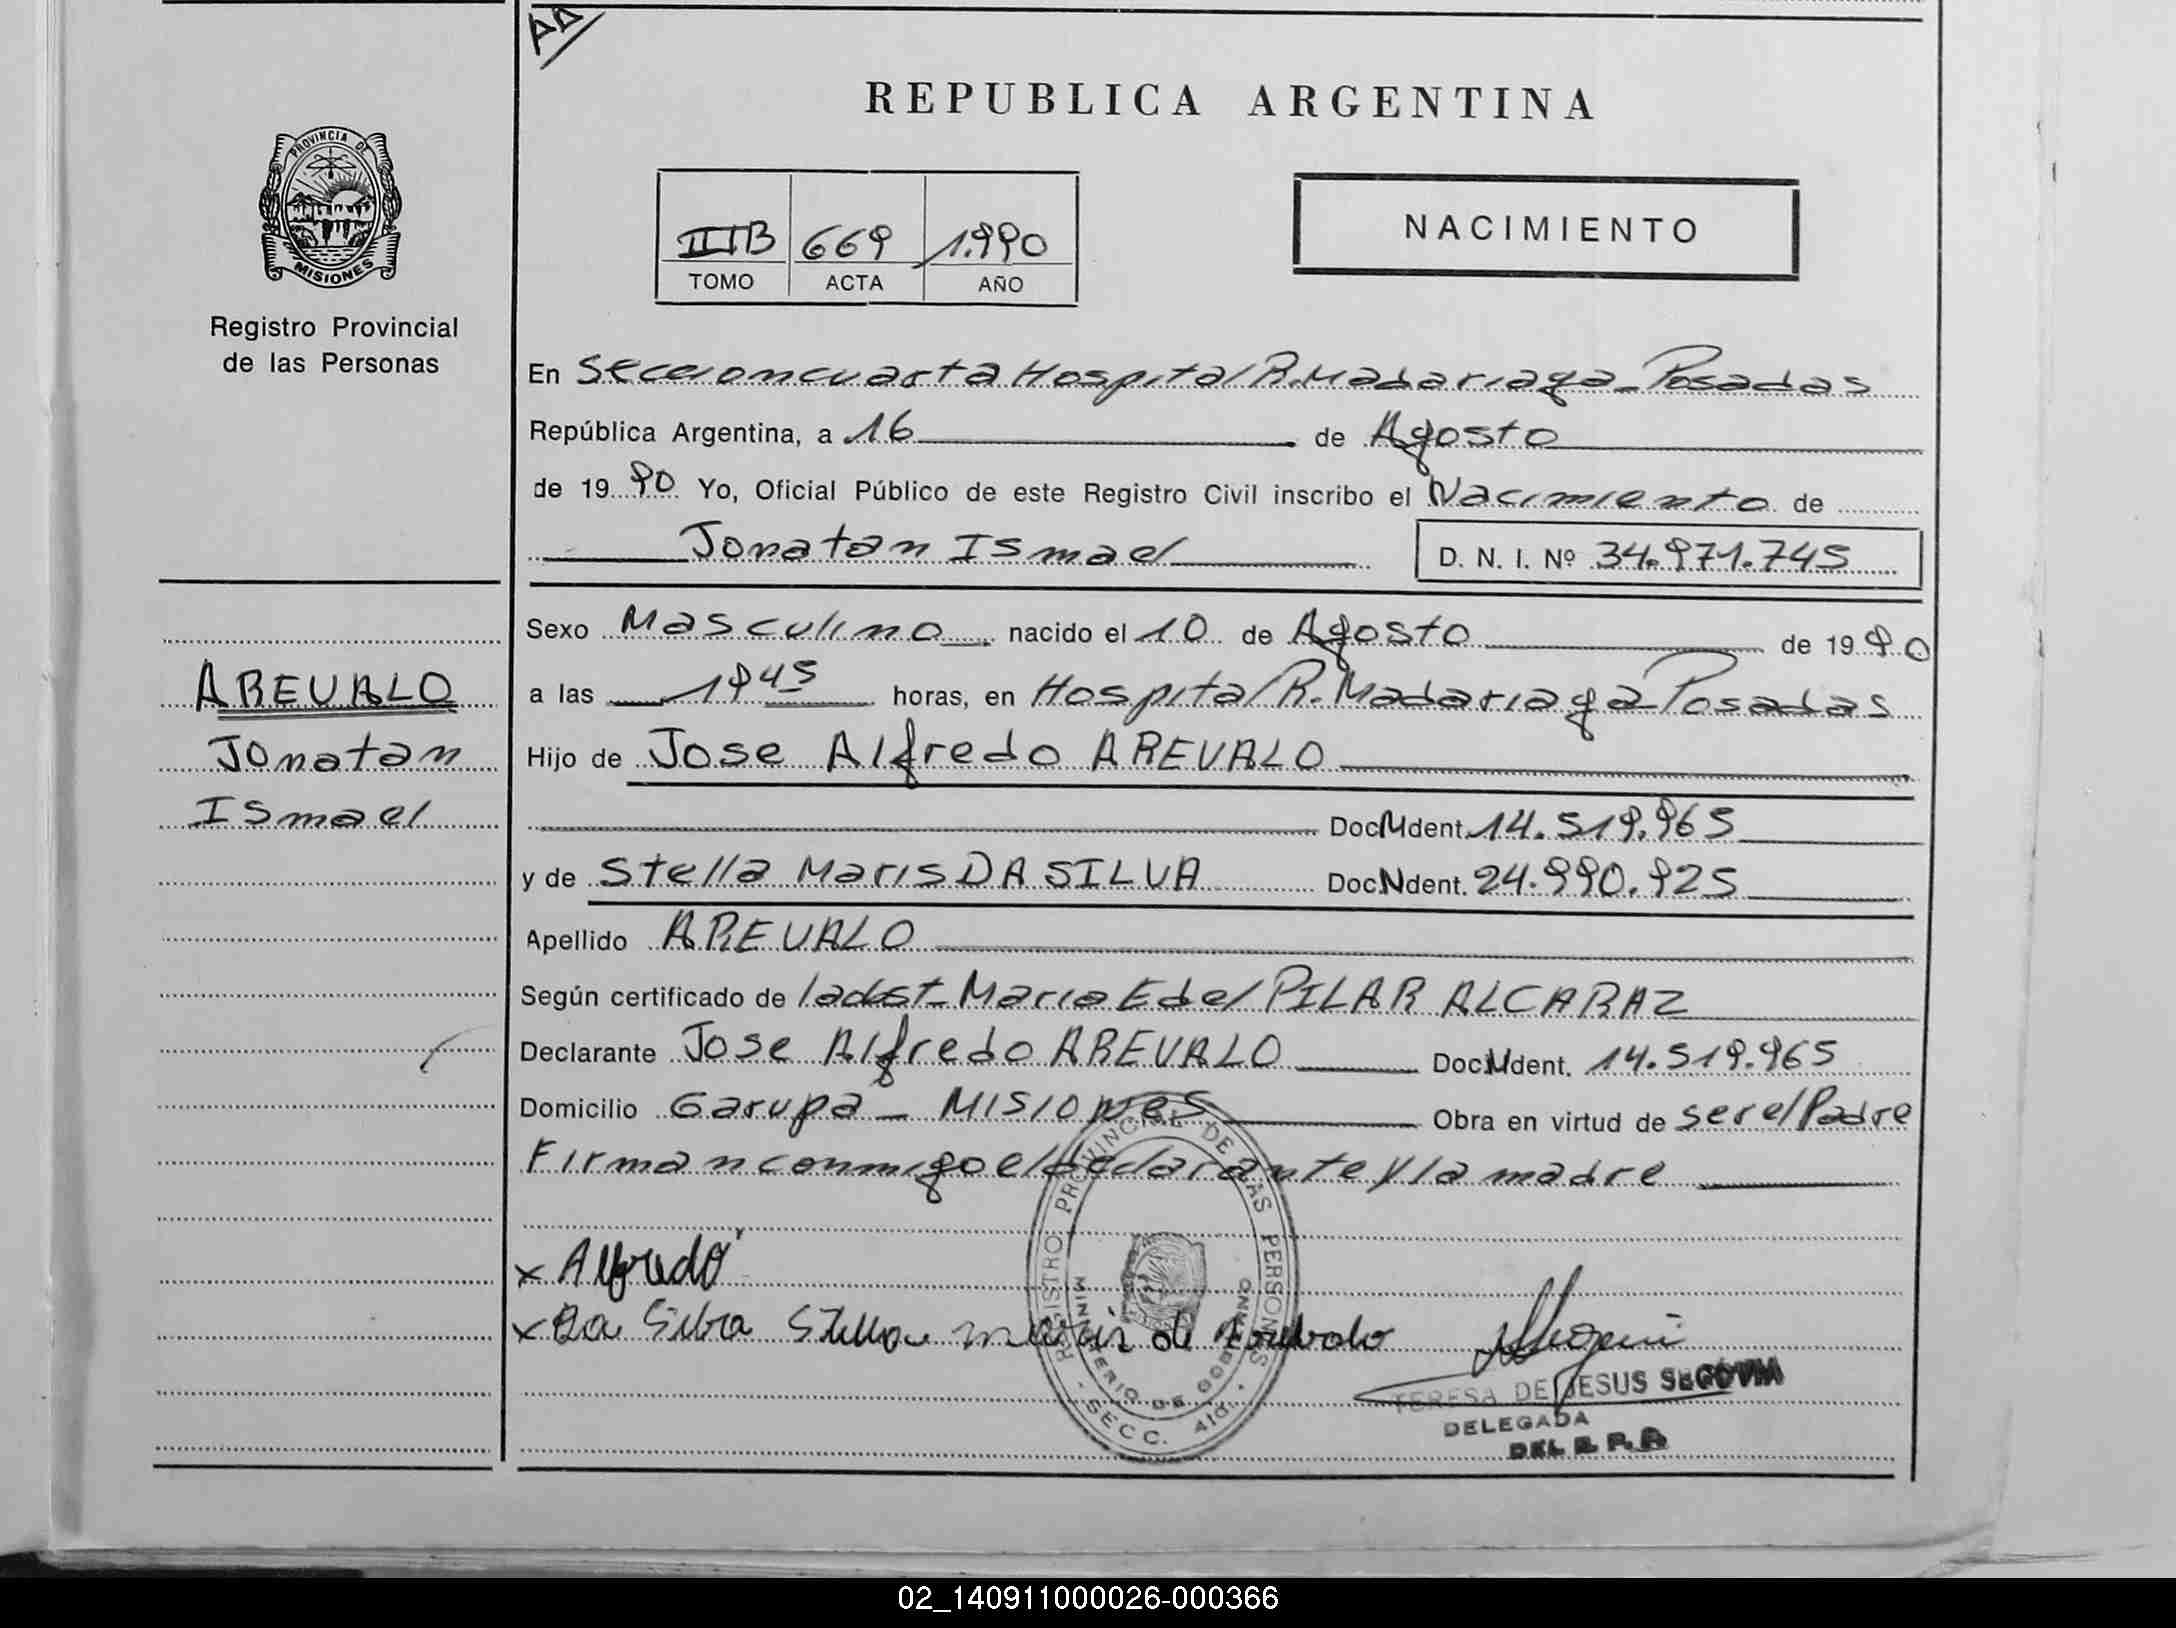 AD
REPUBLICA ARGENTINA
PROVINCIA DE
MISIONES
Registro Provincial
de las Personas
IIIB 669 1.990
TOMO ACTA AÑO
NACIMIENTO
En Seccion cuarta Hospital R. Madariaga - Posadas
República Argentina, a 16 de Agosto
de 1990 Yo, Oficial Público de este Registro Civil inscribo el Nacimiento de
Jonatan Ismael D. N. I. Nº 34.971.745
Sexo Masculino nacido el 10 de Agosto de 1990
a las 19 45 horas, en Hospital R. Madariaga Posadas
Hijo de Jose Alfredo AREVALO
Doc. Ident. 14.519.965
y de Stella Maris DA SILVA Doc. Ident. 24.990.925
Apellido AREVALO
Según certificado de la obst. Maria E del PILAR ALCARAZ
Declarante Jose Alfredo AREVALO Doc. Ident. 14.519.965
Domicilio Garupa - Misiones Obra en virtud de ser el Padre
Firman conmigo el declarante y la madre
AREVALO
Jonatan
Ismael
x Alfredo
x Da Silva Stella de Arevalo
REGISTRO PROVINCIAL DE LAS PERSONAS
MINISTERIO DE GOBIERNO
SECC. 4ta.
TERESA DE JESUS SEGOVIA
DELEGADA
DEL R. P. P.
02_140911000026-000366